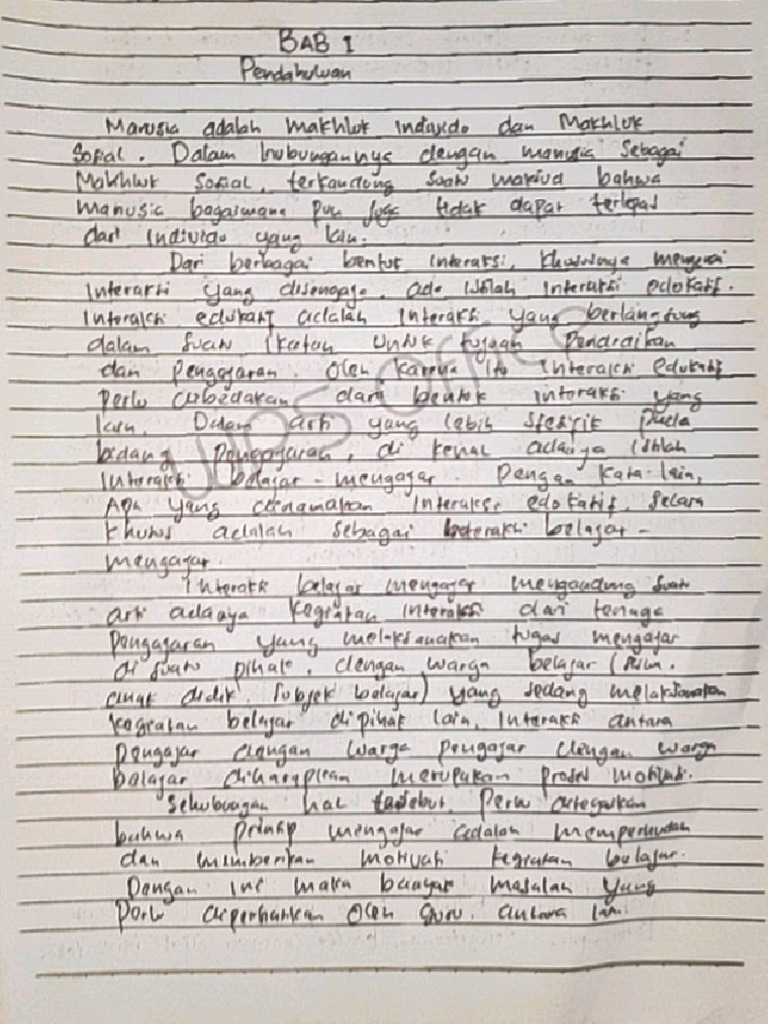 BAB 1
Pendahuluan
Manusia adalah makhluk individo dan Makhluk
Sosial. Dalam hubungannya dengan manusia sebagai
Makhluk Sosial, terkandung suatu maksud bahwa
manusia bagaimana pun juga tidak dapat terlepas
dari individu yang lain.
Dari berbagai bentuk interaksi, khususnya mengenai
interaksi yang disengaja, ada istilah interaksi edukatif.
Interaksi edukatif adalah interaksi yang berlangsung
dalam suatu ikatan untuk tujuan Pendidikan
dan Pengajaran. Oleh karena itu interaksi edukatif
perlu dibedakan dari bentuk interaksi yang
lain. Dalam arti yang lebih spesifik pada
bidang Pengajaran, di kenal adanya istilah
interaksi belajar - mengajar. Dengan kata-lain,
Apa yang dinamakan interaksi edokatif, secara
khusus adalah sebagai interaksi belajar -
mengajar.
Interaksi belajar mengajar mengandung suatu
arti adanya kegiatan interaksi dari tenaga
Pengajaran yang melaksanakan tugas mengajar
di suatu pihak, dengan warga belajar (siswa,
anak didik, subjek belajar) yang sedang melaksanakan
kegiatan belajar dipihak lain. Interaksi antara
pengajar dengan warga pengajar dengan warga
belajar diharapkan merupakan proses motivasi.
Sehubungan hal tersebut, perlu ditegaskan
bahwa prinsip mengajar adalah mempermudah
dan memberikan motivasi kegiatan belajar.
Dengan ini maka banyak masalah yang
Perlu diperhatikan oleh Guru. antara lain:
WPS Office